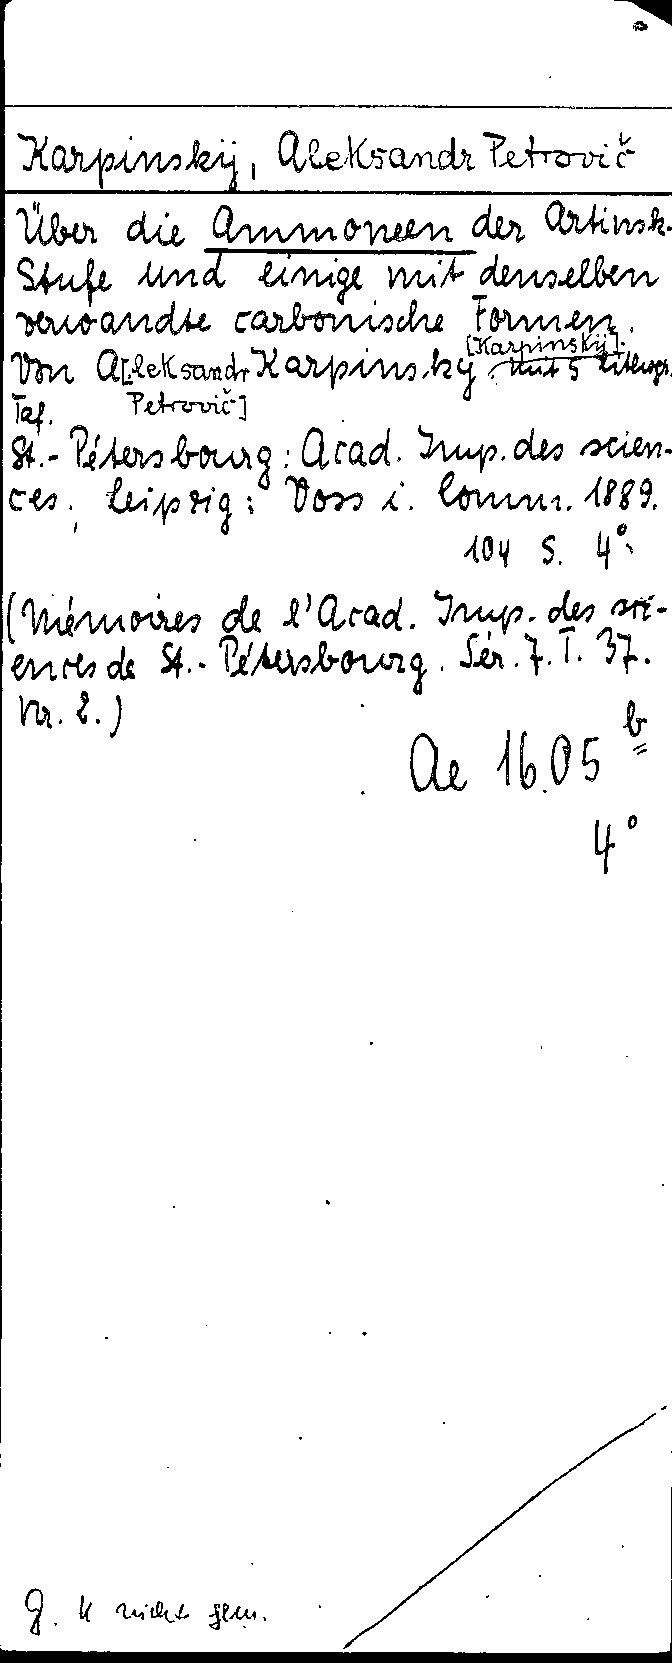 Karpinskij, Aleksandr Petrovič
Über die Ammoneen der Artinsk-
Stufe und einige mit denselben
verwandte carbonische Formen.
[Karpinskij].
Von A[leksandr Karpinsky. Mit 5 lithogr.
Taf. Petrovič]
St.-Pétersbourg: Acad. Imp. des scien-
ces, Leipzig: Voss i. Comm. 1889.
104 S. 4°.
(Mémoires de l'Acad. Imp. des sci-
ences de St.-Pétersbourg. Sér. 7. T. 37.
Nr. 2.)
Ae 16.05 b
4°
g. K nicht gem.